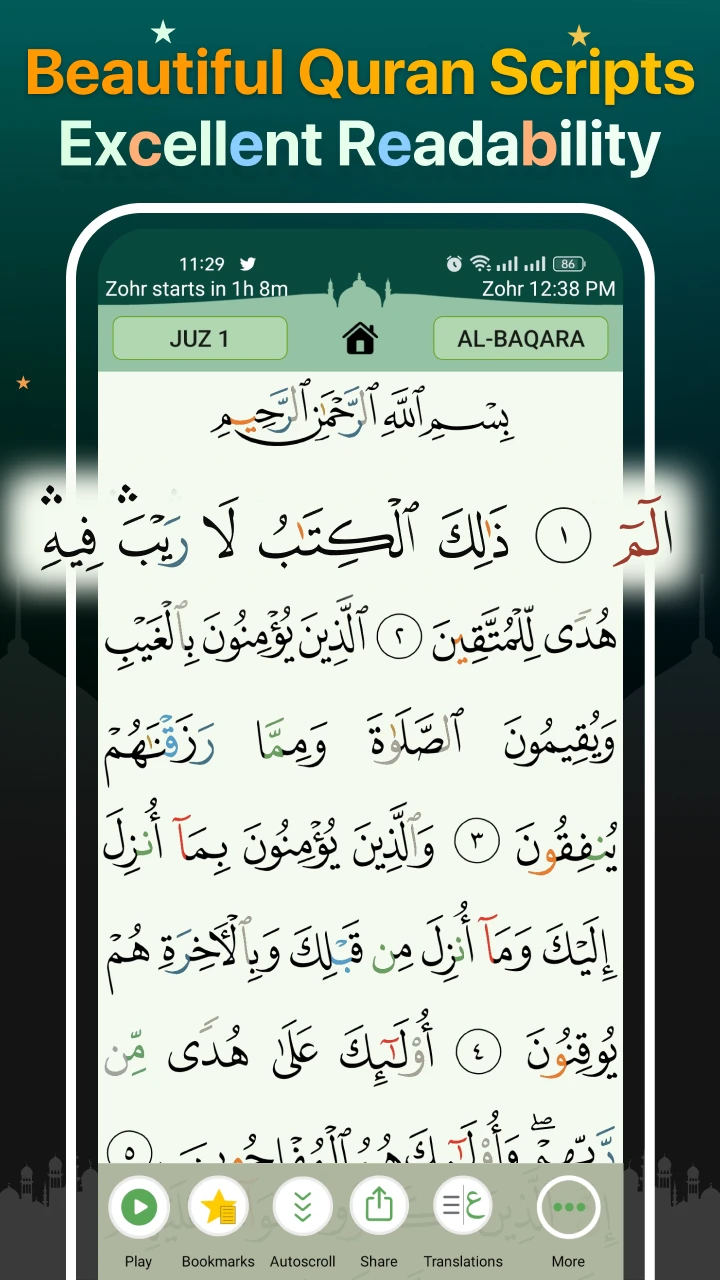 Beautiful Quran Scripts
Excellent Readability
11:29
86
Zohr starts in 1h 8m
Zohr 12:38 PM
JUZ 1
AL-BAQARA
بِسْمِ ٱللَّهِ ٱلرَّحْمَٰنِ ٱلرَّحِيمِ
الٓمٓ ١ ذَٰلِكَ ٱلْكِتَٰبُ لَا رَيْبَ ۛ فِيهِ ۛ
هُدًى لِّلْمُتَّقِينَ ٢ ٱلَّذِينَ يُؤْمِنُونَ بِٱلْغَيْبِ
وَيُقِيمُونَ ٱلصَّلَوٰةَ وَمِمَّا رَزَقْنَٰهُمْ
يُنفِقُونَ ٣ وَٱلَّذِينَ يُؤْمِنُونَ بِمَآ أُنزِلَ
إِلَيْكَ وَمَآ أُنزِلَ مِن قَبْلِكَ وَبِٱلْأَخِرَةِ هُمْ
يُوقِنُونَ ٤ أُوْلَٰٓئِكَ عَلَىٰ هُدًى مِّن
رَّبِّهِمْ ۖ وَأُوْلَٰٓئِكَ هُمُ ٱلْمُفْلِحُونَ ٥
Play
Bookmarks
Autoscroll
Share
Translations
More